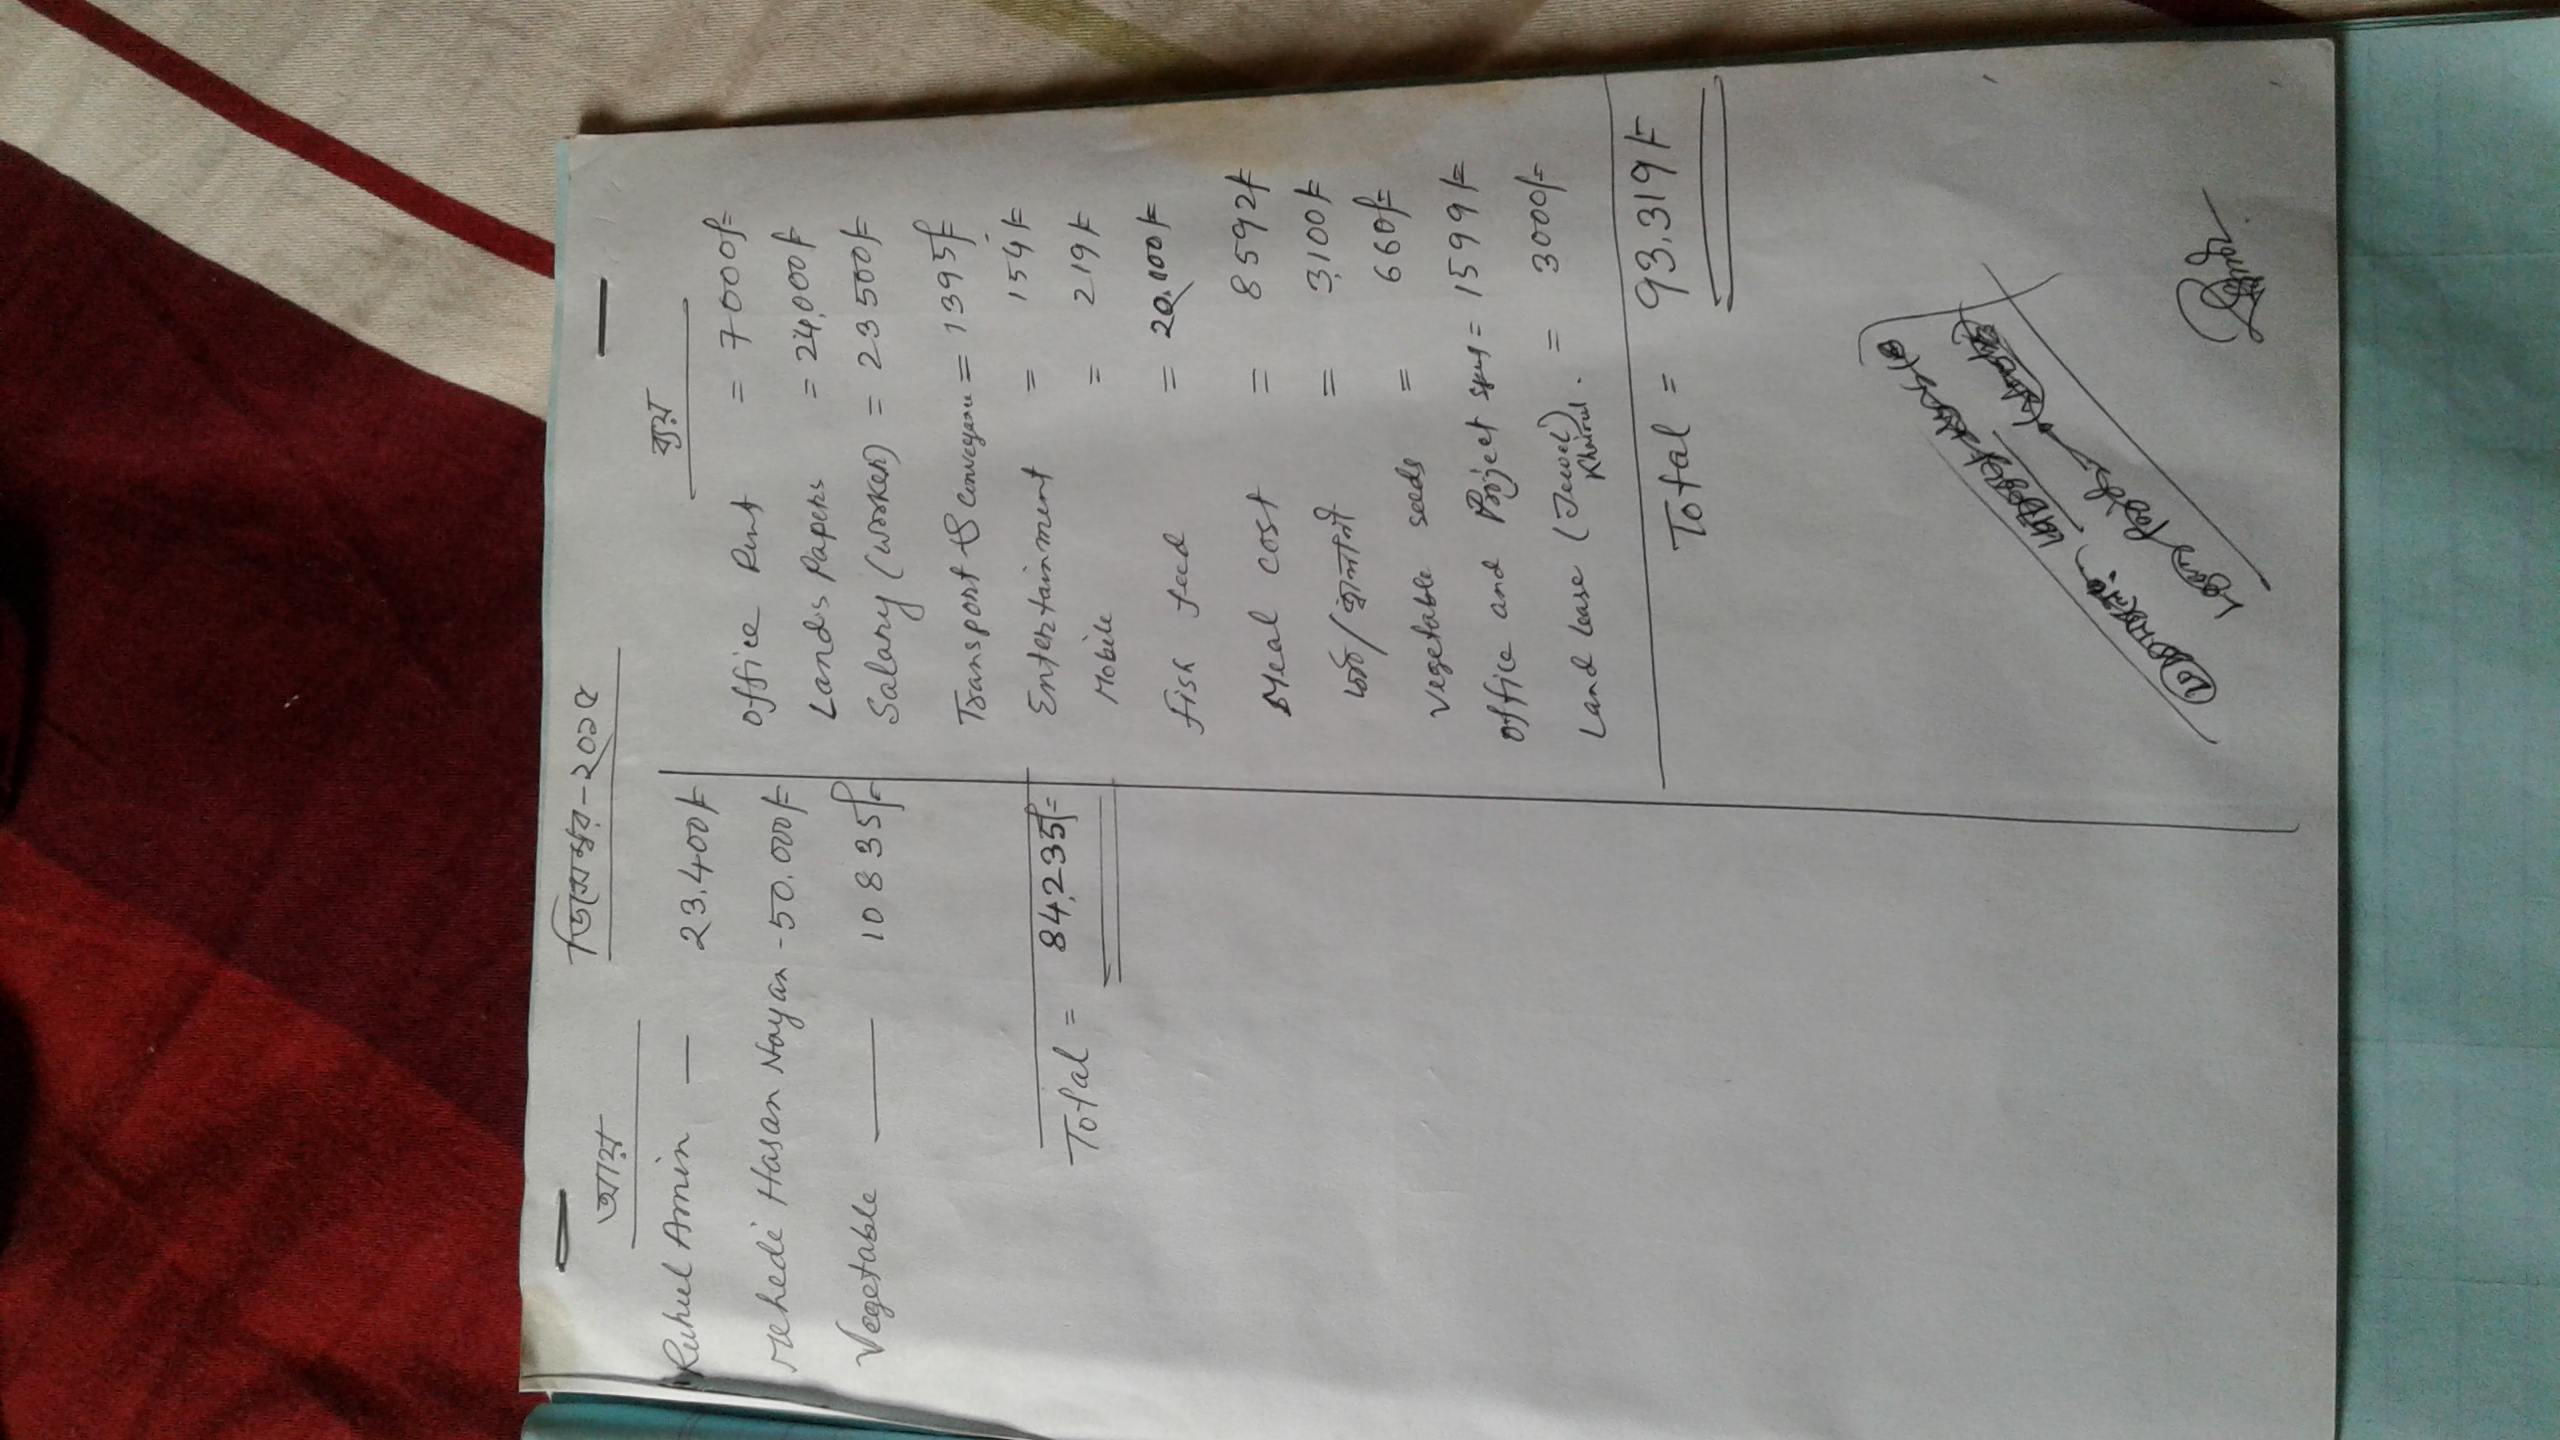 ডিসেম্বর-২০১৫
আয়
Ruhul Amin — 23.400/=
Mehedi Hasan Nayan - 50.000/=
Vegetable — 10835/=
Total = 84,235/=
ব্যয়
Office Rent = 7000/=
Land's Papers = 24,000/=
Salary (worker) = 23500/=
Transport & Conveyance = 1395/=
Entertainment = 154/=
Mobile = 219/=
Fish feed = 20,100/=
Meal cost = 8592/=
/ জ্বালানী = 3,100/=
Vegetable seeds = 660/=
Office and Project = 1599/=
Land lease (Jewel) = 3000/=
Khairul.
Total = 93.319/=
Loan